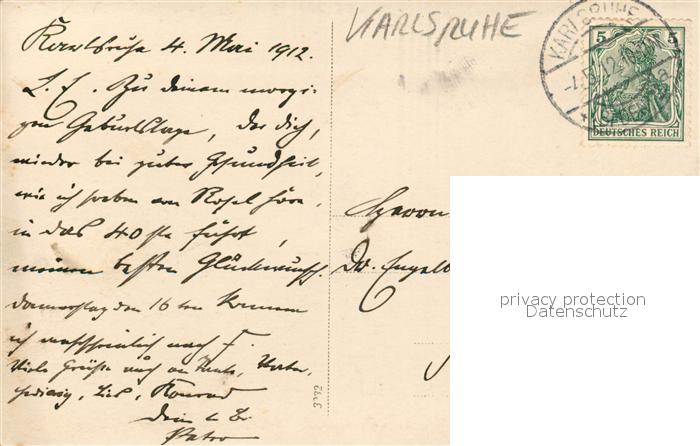 Karlsruhe 4. Mai 1912.
L. E. Zu deinem morgi-
gen Geburtstage, der dich,
wieder bei guter Gesundheit,
wie ich soeben von Rosel höre,
in das 40te führt,
meinen besten Glückwunsch.
Donnerstag den 16ten komme
ich wahrscheinlich nach F.
Viele Grüße auch an
Konrad
Dein l. Br.
KARLSRUHE
KARLSRUHE
5 5
DEUTSCHES REICH
Herrn
Dr.
3132
privacy protection
Datenschutz